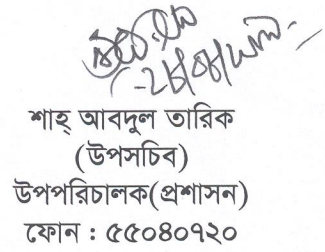 শাহ্ আবদুল তারিক
(উপসচিব)
উপপরিচালক(প্রশাসন)
ফোন : ৫৫০৪০৭২০